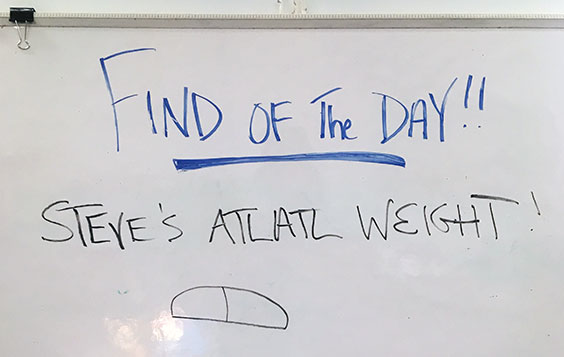 FIND OF The DAY!!
STEVE'S ATLATL WEIGHT!